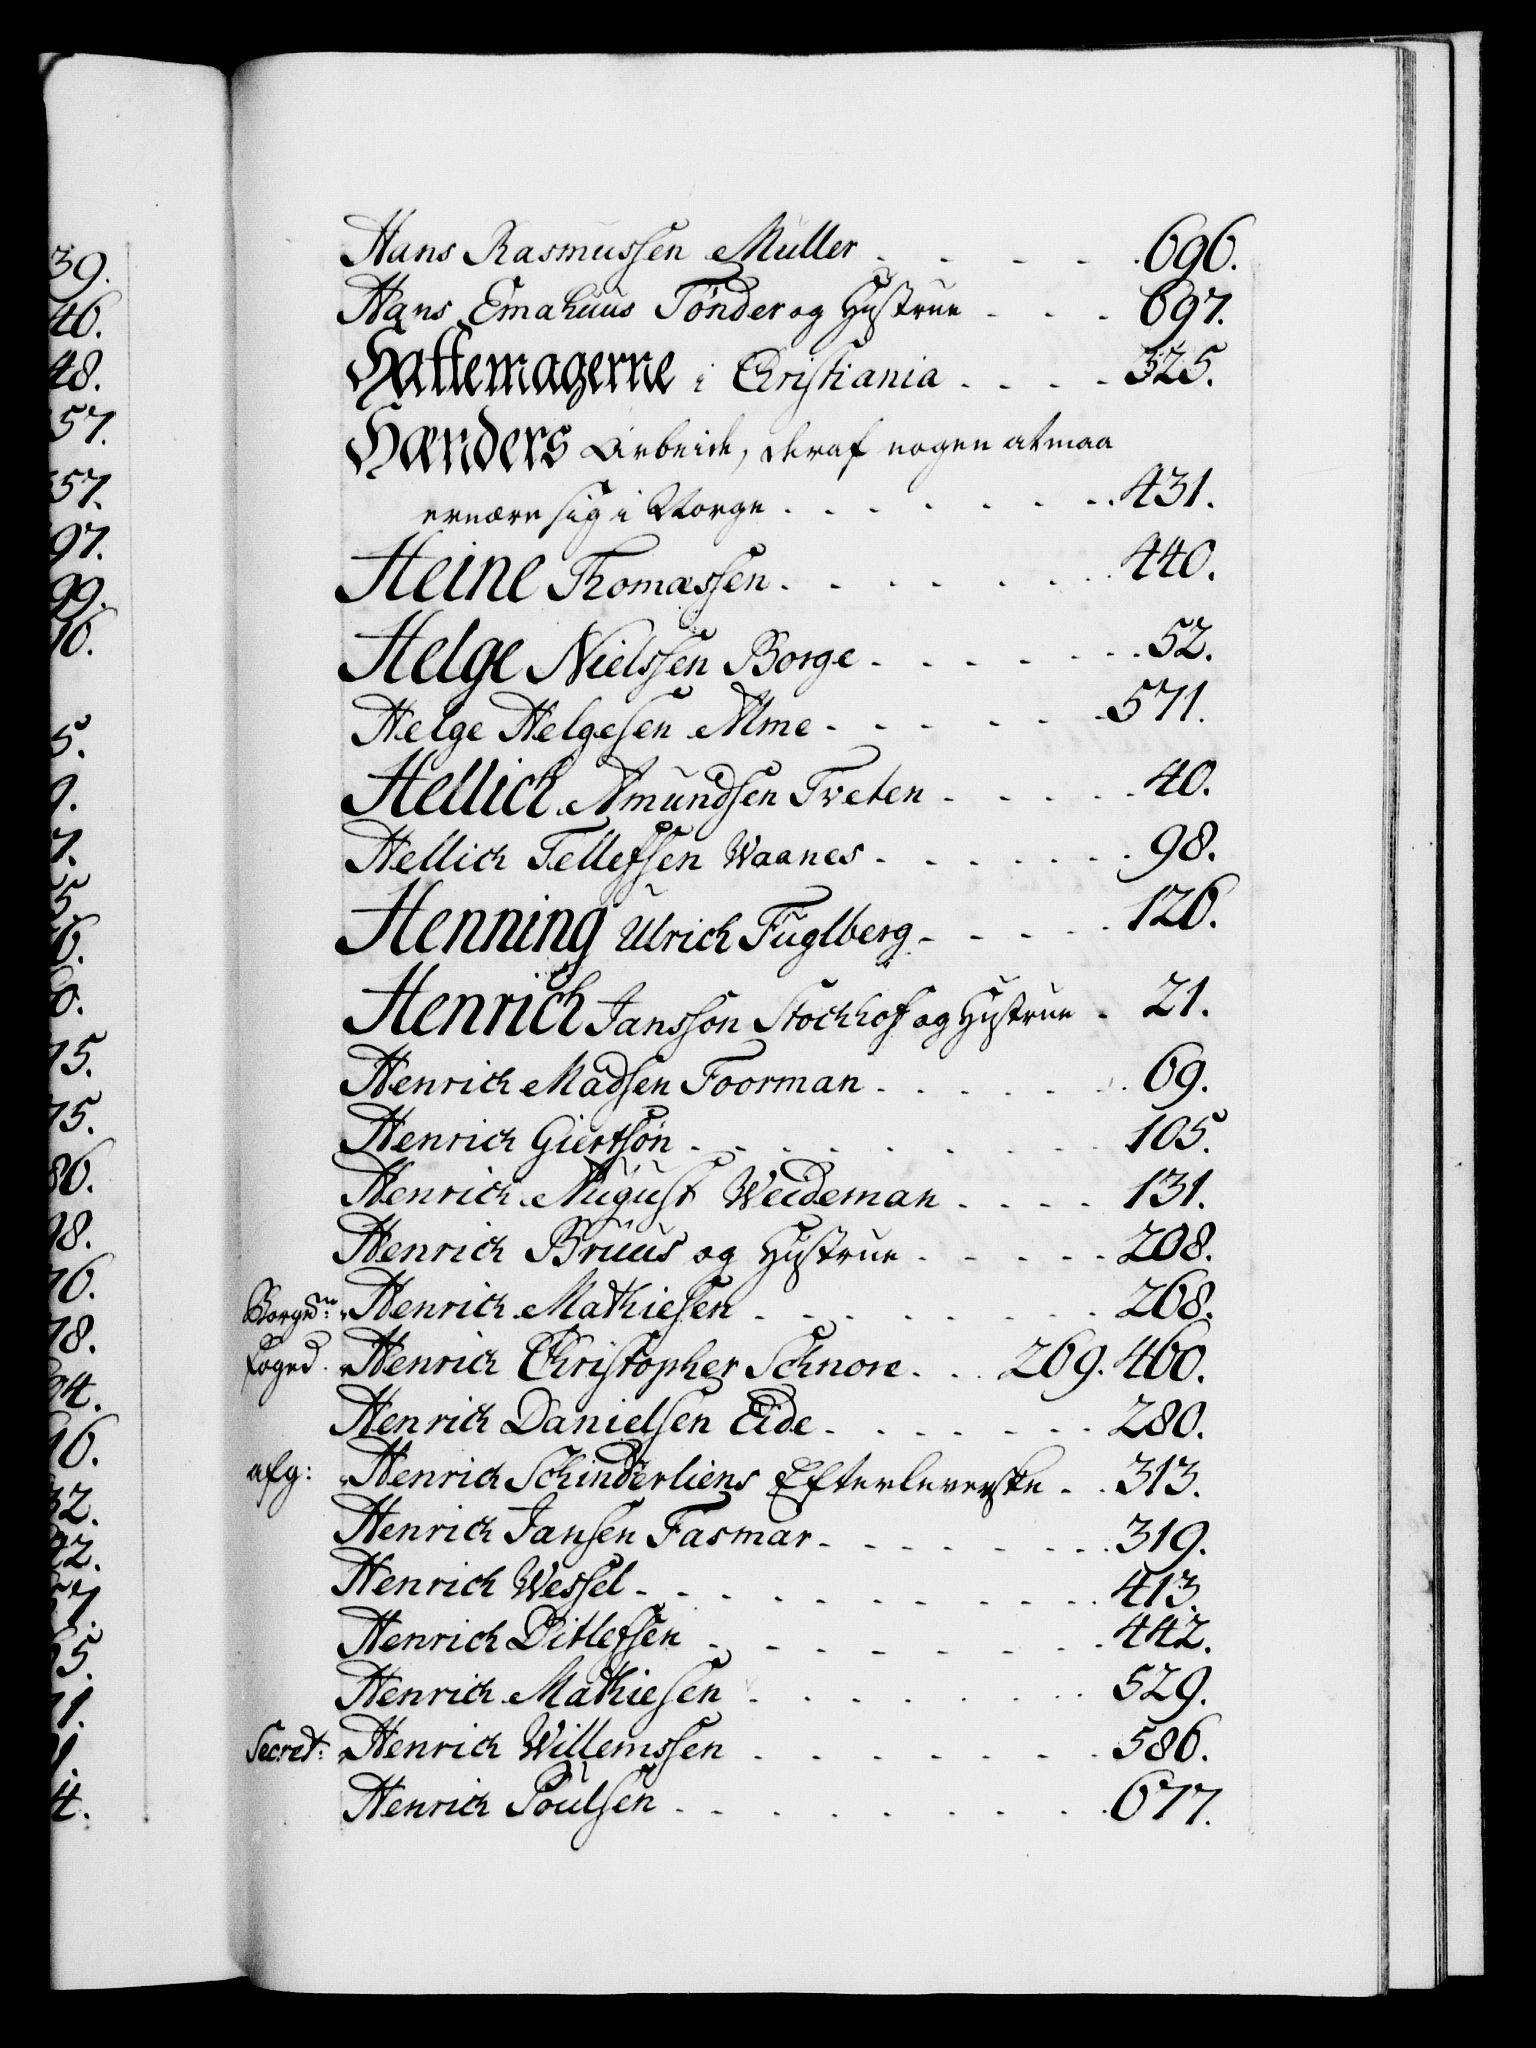 39.
46.
48.
57.
57.
97.
99.
16.
5.
9.
7.
5.
6.
0.
75.
75.
86.
98.
76.
78.
94.
16.
32.
92.
57.
65.
71.
9.
4.
Hans Rasmussen Muller . . . . . 696.
Hans Emahuus Tønder og Hustrue . . . 697.
Hattemagerne i Christiania . . . . 325.
Hænders Arbeide, deraf nogen at maa
ernære sig i Norge . . . . . . . 431.
Heine Thomassen . . . . . . . 440.
Helge Nielssen Borge . . . . . . . 52.
Helge Helgesen Alme . . . . . . 571.
Hellich Amundsen Tveten . . . . . 40.
Hellich Tellefsen Waanes . . . . . . 98.
Henning Ulrich Fuglberg . . . . . 126.
Henrich Jansson Stochhof og Hustrue . 21.
Henrich Madsen Foorman . . . . . 69.
Henrich Giertsøn . . . . . . . . 105.
Henrich August Weideman . . . . 131.
Henrich Bruus og Hustrue . . . . . 208.
Borgem: Henrich Mathiesen . . . . . . . 268.
Foged. Henrich Christopher Schnore . . . 269. 460.
Henrich Danielsen Eide . . . . . . 280.
afg: Henrich Schinderliens Efterleverske . . 313.
Henrich Jansen Fasmar . . . . . . 319.
Henrich Wessel . . . . . . . . . 413.
Henrich Ditlefsen . . . . . . . 442.
Henrich Mathiesen . . . . . . . 529.
Secret: Henrich Willemssen . . . . . . . 586.
Henrich Poulsen . . . . . . . . 677.